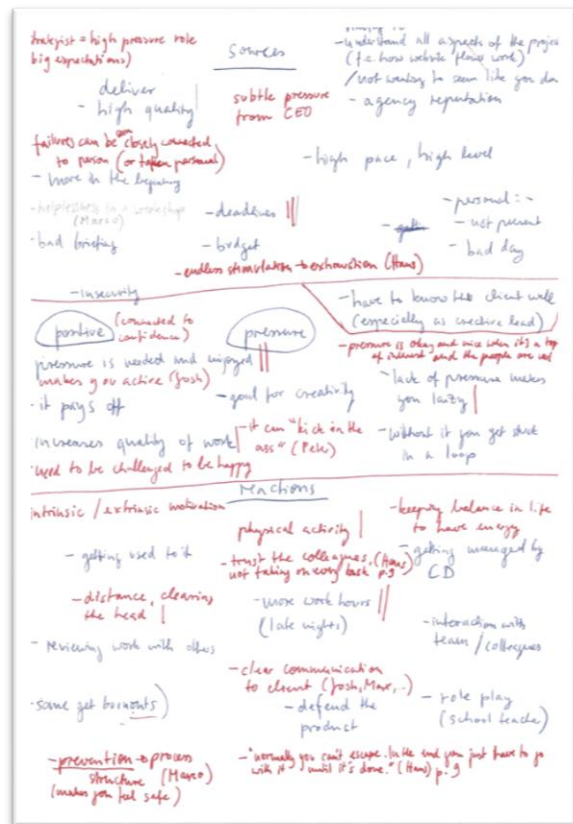 strategist = high pressure role
big expectations)
Sources
- understand all aspects of the projec
(f.e. how website flows work)
/not wanting to seem like you don
deliver
- high quality
subtle pressure
from CEO
- agency reputation
failures can be closely connected
to person (or taken personal)
- more in the beginning
- high pace, high level
- helplessness in a workshop
(Marco)
- deadlines
- personal: -
- not present
- bad day
- bad briefing
- budget
- endless stimulation → exhaustion (Hans)
- insecurity
- have to know the client well
(especially as creative lead)
positive
(connected to
confidence)
pressure
- pressure is okay and nice when it's a top
of interest and the people are
pressure is needed and enjoyed
makes you active (Josh)
- lack of pressure makes
you lazy
- it pays off
- goal for creativity
increases quality of work
- it can "kick in the
ass"
- without it you get stuck
in a loop
- need to be challenged to be happy
reactions
intrinsic / extrinsic motivation
physical activity
- keeping balance in life
to have energy
- getting used to it
- trust the colleagues. (Hans)
not taking on every task p.9
- getting managed by
CD
- distance, clearing
the head
- more work hours
(late nights)
- interaction with
team / colleagues
- reviewing work with others
- clear communication
to client (Josh, Marc, ..)
- some get burnouts)
- defend the
product
- role play
(school teacher)
- prevention → process
structure (Marco)
(makes you feel safe)
- "normally you can't escape. In the end you just have to go
with it until it's done." (Hans) p. 9